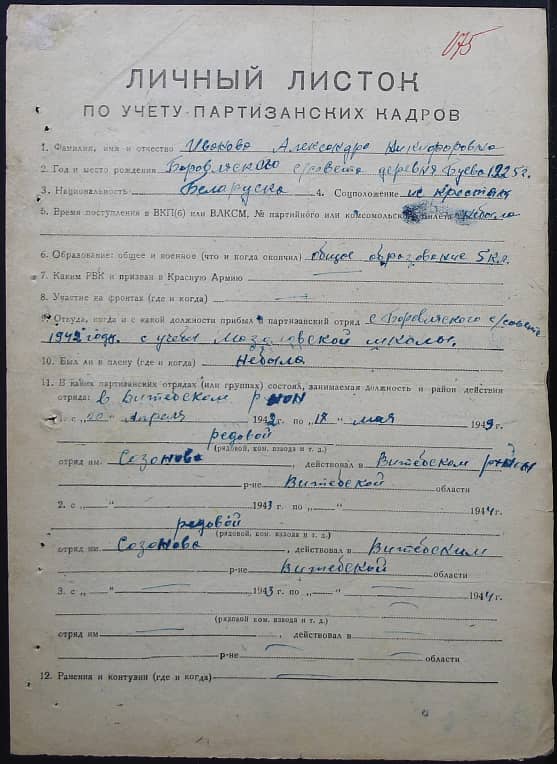 175
ЛИЧНЫЙ ЛИСТОК
ПО УЧЕТУ ПАРТИЗАНСКИХ КАДРОВ
1. Фамилия, имя и отчество Иванова Александра Никифоровна
2. Год и место рождения Боровлянского с/совета деревня Буева 1925 г.
3. Национальность Беларуска 4. Соцположение из крестьян
5. Время поступления в ВКП(б) или ВЛКСМ, № партийного или комсомольского билета небыла
6. Образование: общее и военное (что и когда окончил) общее образование 5 кл.
7. Каким РВК и призван в Красную Армию —
8. Участие на фронтах (где и когда) —
9. Откуда, когда и с какой должности прибыл в партизанский отряд с Боровлянского с/совета
1942 годы. с учёбы школы.
10. Был ли в плену (где и когда) небыла
11. В каких партизанских отрядах (или группах) состоял, занимаемая должность и район действия
отряда: в Витебском
1. с „20" апреля 1942 г. по „18" мая 1943 г.
редовой
(рядовой, ком. взвода и т. д.)
отряд им. Сазонова, действовал в Витебском
р-не Витебской области
2. с „—" 1943 г. по „—" 1944 г.
редовой
(рядовой, ком. взвода и т. д.)
отряд им. Сазонова, действовал в Витебским
р-не Витебской области
3. с „—" — 1943 г. по „—" — 1944 г.
(рядовой ком. взвода и т. д.)
отряд им —, действовал в —
— р-не — области
12. Ранения и контузии (где и когда) —